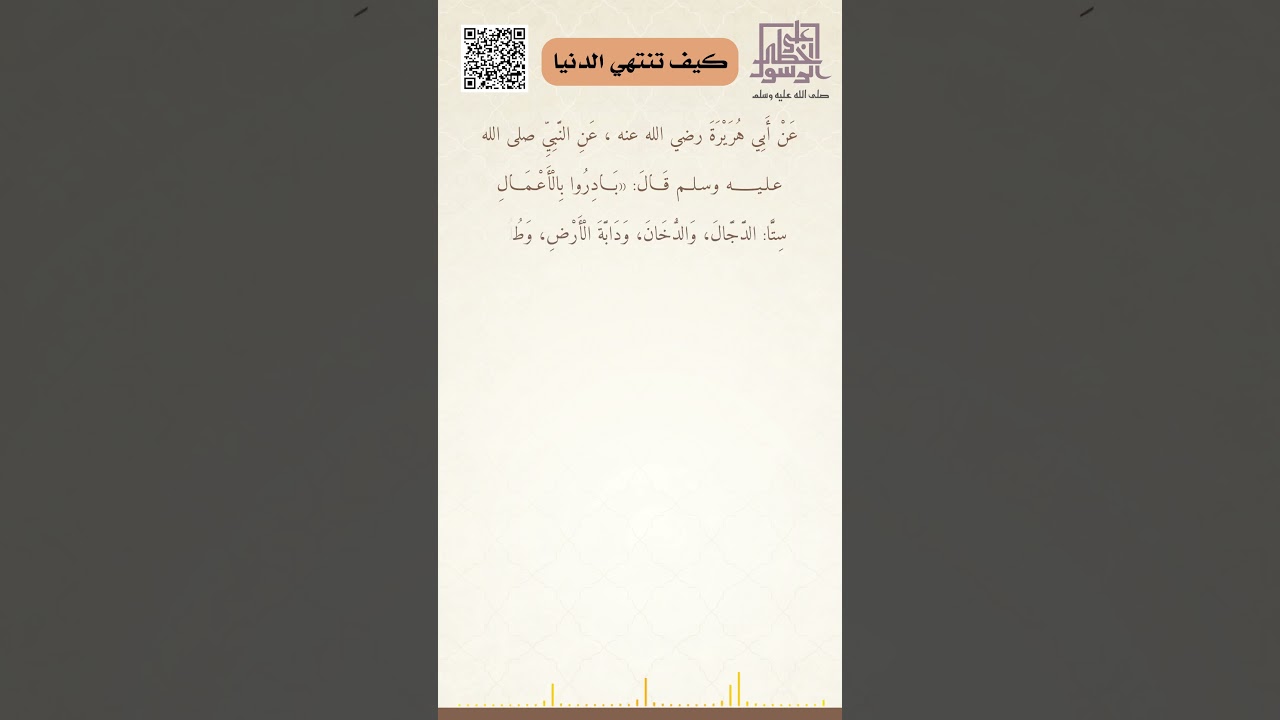 على خطى الرسول
صلى الله عليه وسلم
كيف تنتهي الدنيا
عَنْ أَبِي هُرَيْرَةَ رضي الله عنه ، عَنِ النَّبِيِّ صلى الله
عليه وسلم قَالَ: «بَادِرُوا بِالْأَعْمَالِ
سِتًّا: الدَّجَّالَ، وَالدُّخَانَ، وَدَابَّةَ الْأَرْضِ، وَطُ